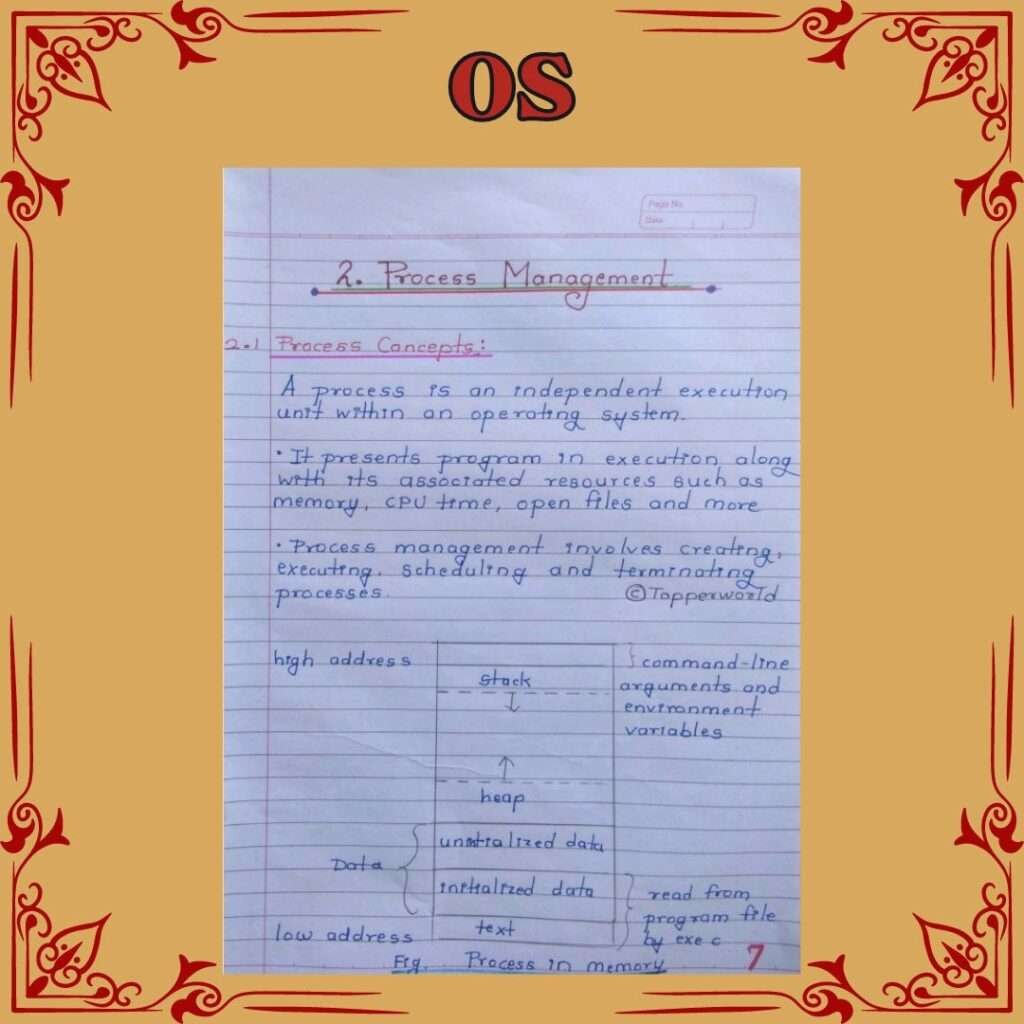 OS
Page No.
Date
2. Process Management
2.1 Process Concepts:
A process is an independent execution
unit within an operating system.
• It presents program in execution along
with its associated resources such as
memory, CPU time, open files and more
• Process management involves creating,
executing, scheduling and terminating
processes.
©Topperworld
high address
stack
command-line
arguments and
environment
variables
heap
Data
uninitialized data
initialized data
read from
program file
by exec
text
low address
Fig. Process in memory
7